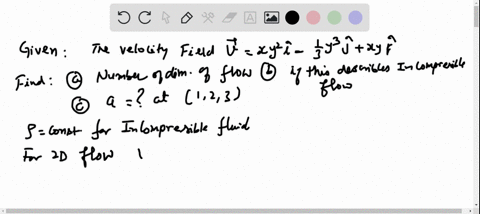 Given : The velocity Field V⃗ = xy² î - 1/3 y³ ĵ + xy k̂
Find : ⓐ Number of dim. of flow ⓑ if this describes Incompresible flow
ⓒ a = ? at (1, 2, 3)
ρ = const for Incompresible fluid
For 2D flow